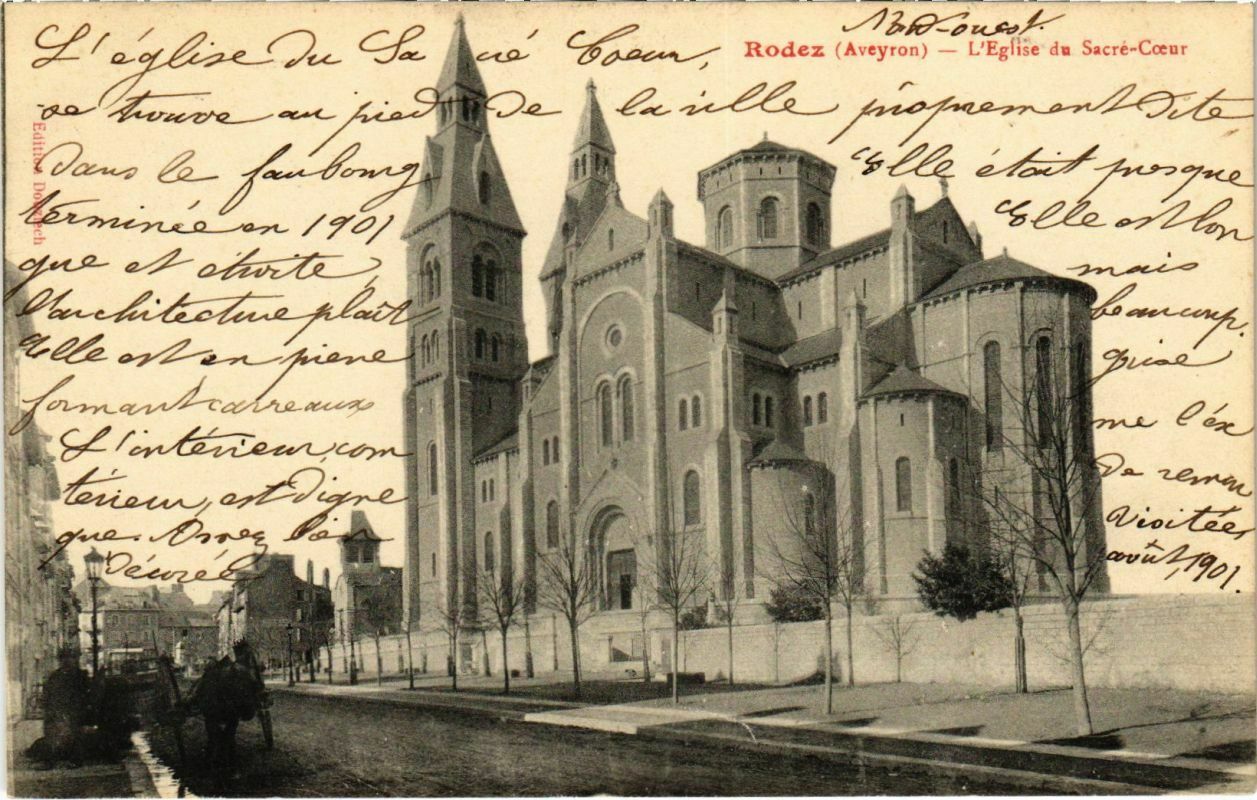 Nord-ouest.
Rodez (Aveyron) — L'Eglise du Sacré-Cœur
L'église du Sacré Coeur,
se trouve au pied de la ville proprement dite,
dans le faubourg Elle était presque
terminée en 1901 Elle est lon
gue et étroite, mais
l'architecture plaît beaucoup.
Elle est en pierre grise
formant carreaux
L'intérieur, com me l'éx
térieur, est digne de remar
que. Assez bien Visitée
décorée août, 1901.
Edition